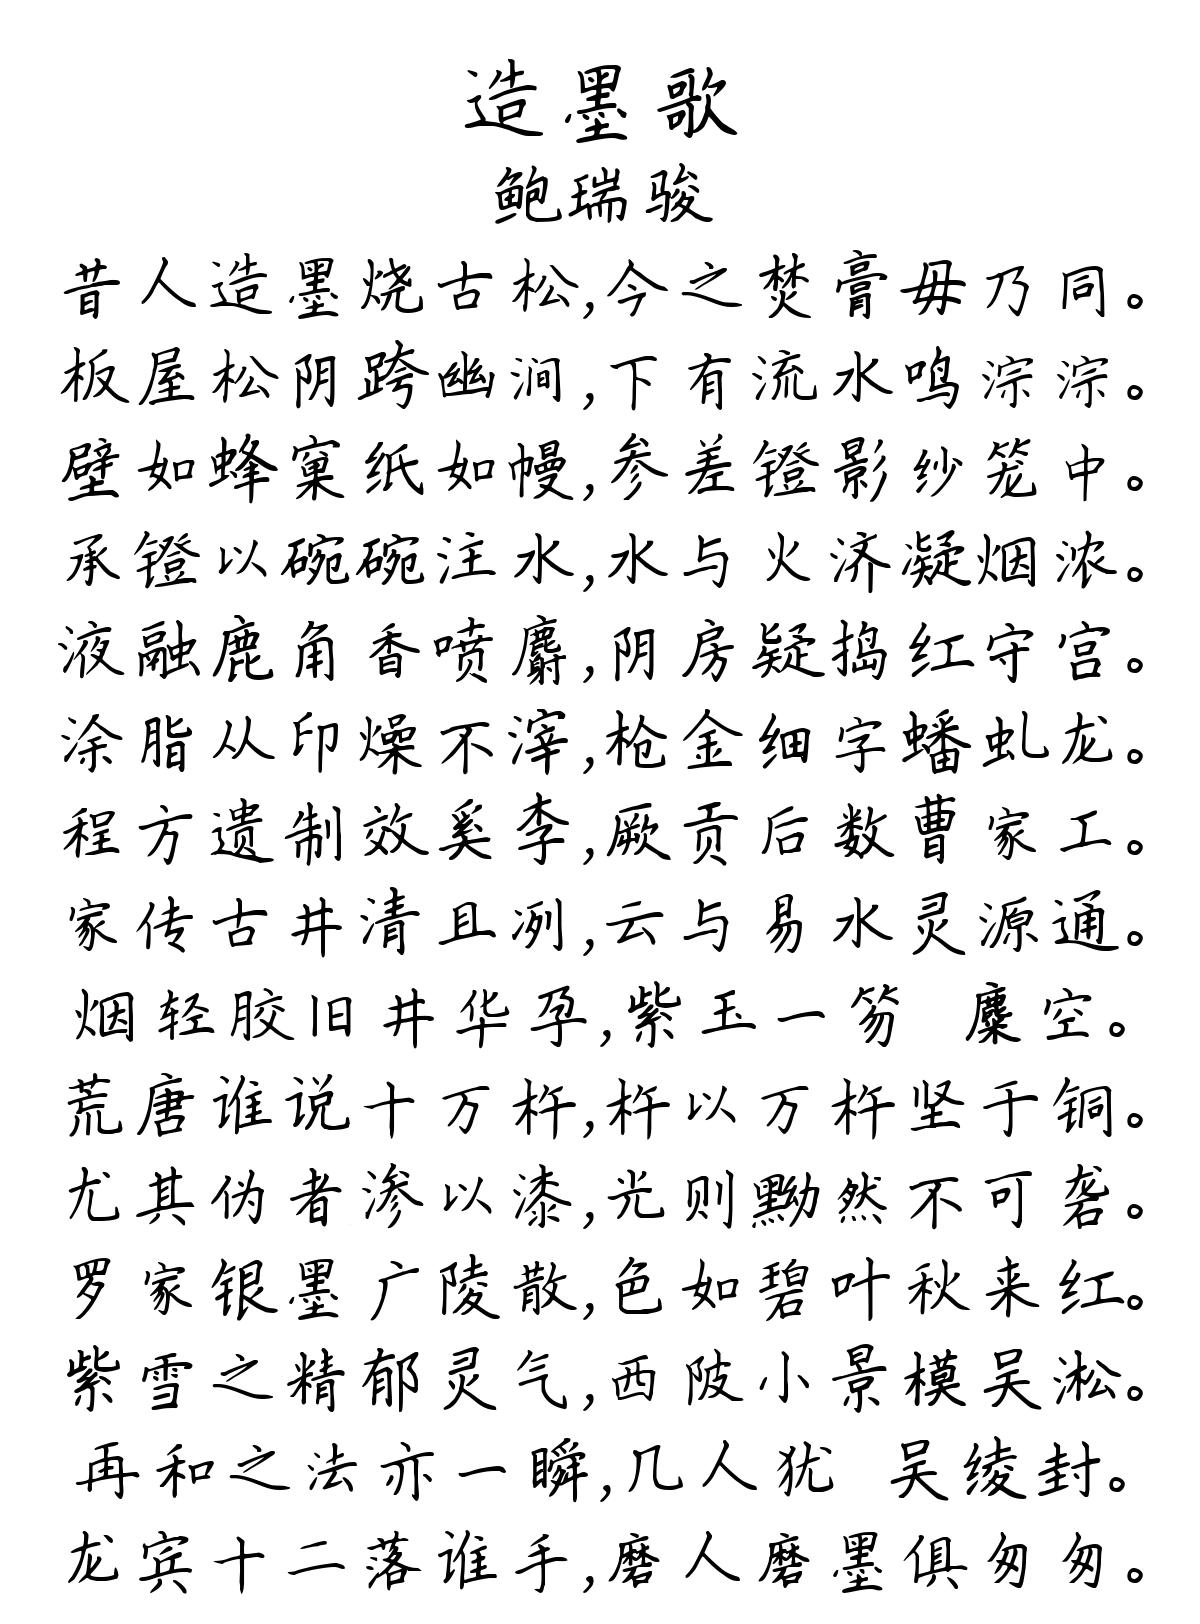 造墨歌
鲍瑞骏
昔人造墨烧古松,今之焚膏毋乃同。
板屋松阴跨幽涧,下有流水鸣淙淙。
壁如蜂窠纸如幔,参差镫影纱笼中。
承镫以碗碗注水,水与火济凝烟浓。
液融鹿角香喷麝,阴房疑捣红守宫。
涂脂从印燥不滓,枪金细字蟠虬龙。
程方遗制效奚李,厥贡后数曹家工。
家传古井清且冽,云与易水灵源通。
烟轻胶旧井华孕,紫玉一笏 麋空。
荒唐谁说十万杵,杵以万杵坚于铜。
尤其伪者渗以漆,光则黝然不可砻。
罗家银墨广陵散,色如碧叶秋来红。
紫雪之精郁灵气,西陂小景模吴淞。
再和之法亦一瞬,几人犹 吴绫封。
龙宾十二落谁手,磨人磨墨俱匆匆。